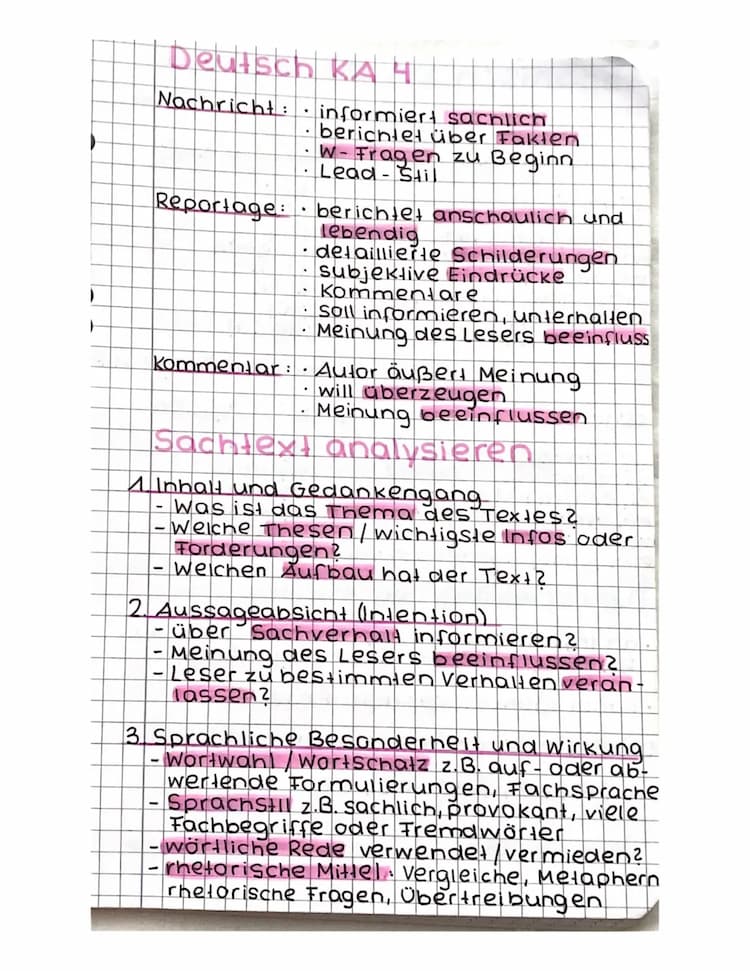 Deutsch KA 4
Nachricht: · informiert sachlich
· berichtet über Fakten
· W-Fragen zu Beginn
· Lead-Stil
Reportage: · berichtet anschaulich und
lebendig
· detaillierte Schilderungen
· subjektive Eindrücke
· Kommentare
· soll informieren, unterhalten
· Meinung des Lesers beeinfluss
Kommentar: · Autor äußert Meinung
· will überzeugen
· Meinung beeinflussen
Sachtext analysieren
1. Inhalt und Gedankengang
- Was ist das Thema des Textes?
- Welche Thesen / wichtigste Infos oder
Forderungen?
- Welchen Aufbau hat der Text?
2. Aussageabsicht (Intention)
- über Sachverhalt informieren?
- Meinung des Lesers beeinflussen?
- Leser zu bestimmten Verhalten veran-
lassen?
3. Sprachliche Besonderheit und Wirkung
- Wortwahl / Wortschatz z.B. auf- oder ab-
wertende Formulierungen, Fachsprache
- Sprachstil z.B. sachlich, provokant, viele
Fachbegriffe oder Fremdwörter
- wörtliche Rede verwendet / vermieden?
- rhetorische Mittel: Vergleiche, Metaphern
rhetorische Fragen, Übertreibungen